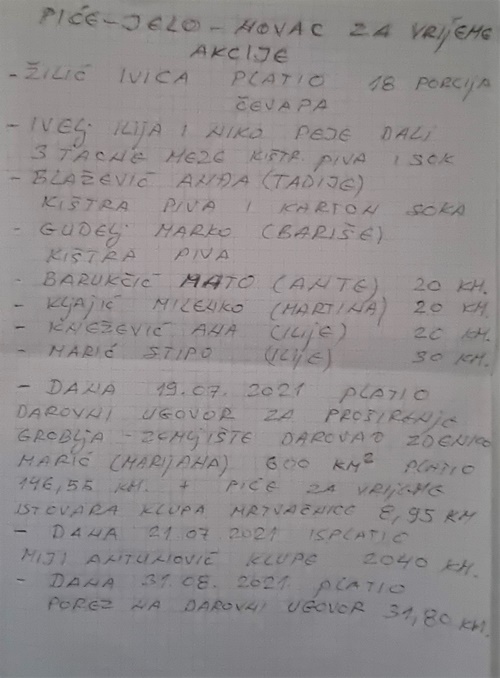 PIĆE-JELO-NOVAC ZA VRIJEME
AKCIJE
- ŽILIĆ IVICA PLATIO 18 PORCIJA
ČEVAPA
- IVELJ ILIJA I NIKO PEJE DALI
3 TACNE MEZE KIŠTR. PIVA I SOK
- BLAŽEVIĆ ANĐA (TADIJE)
KIŠTRA PIVA I KARTON SOKA
- GUDELJ MARKO (BARIŠE)
KIŠTRA PIVA
- BARUKČIĆ MATO (ANTE) 20 KM.
- KLJAJIĆ MILENKO (MARTINA) 20 KM.
- KNEŽEVIĆ ANA (ILIJE) 20 KM.
- MARIĆ STIPO (ILIJE) 30 KM.
- DANA 19.07.2021 PLATIO
DAROVNI UGOVOR ZA PROŠIRENJE
GROBLJA - ZEMLJIŠTE DAROVAO ZDENKO
MARIĆ (MARIJANA) 600 KM² PLATIO
146,55 KM. + PIĆE ZA VRIJEME
ISTOVARA KLUPA MRTVAČNICE 8,95 KM
- DANA 21.07 2021 ISPLATIO
MIJI ANTUNOVIĆ KLUPE 2040 KM.
- DANA 31.08.2021 PLATIO
POREZ NA DAROVNI UGOVOR 31,80 KM.